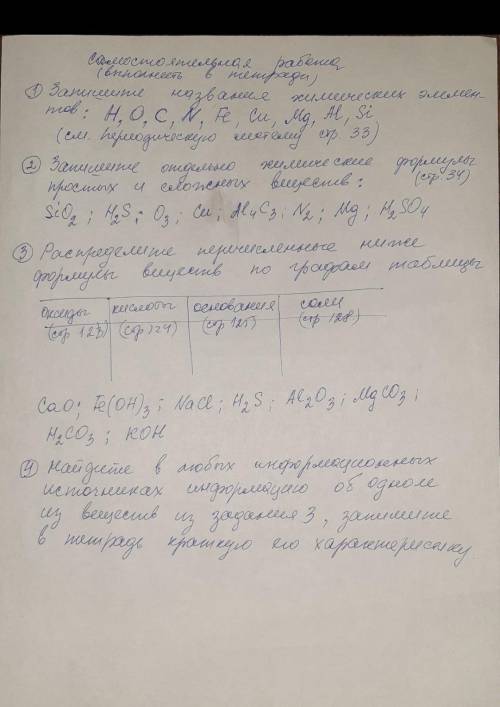 Самостоятельная работа
(выполнить в тетради)
① Запишите названия химических элемен-
тов: H, O, C, N, Fe, Cu, Mg, Al, Si
(см. периодическую систему стр 33)
② Запишите отдельно химические формулы
простых и сложных веществ: (стр. 34)
SiO2; H2S; O3; Cu; Al4C3; N2; Mg; H2SO4
③ Распределите перечисленные ниже
формулы веществ по графам таблицы
оксиды кислоты основания соли
(стр 123) (стр 124) (стр 125) (стр 128)
CaO; Fe(OH)3; NaCl; H2S; Al2O3; MgCO3;
H2CO3; KOH
④ Найдите в любых информационных
источниках информацию об одном
из веществ из задания 3, запишите
в тетрадь краткую его характеристику